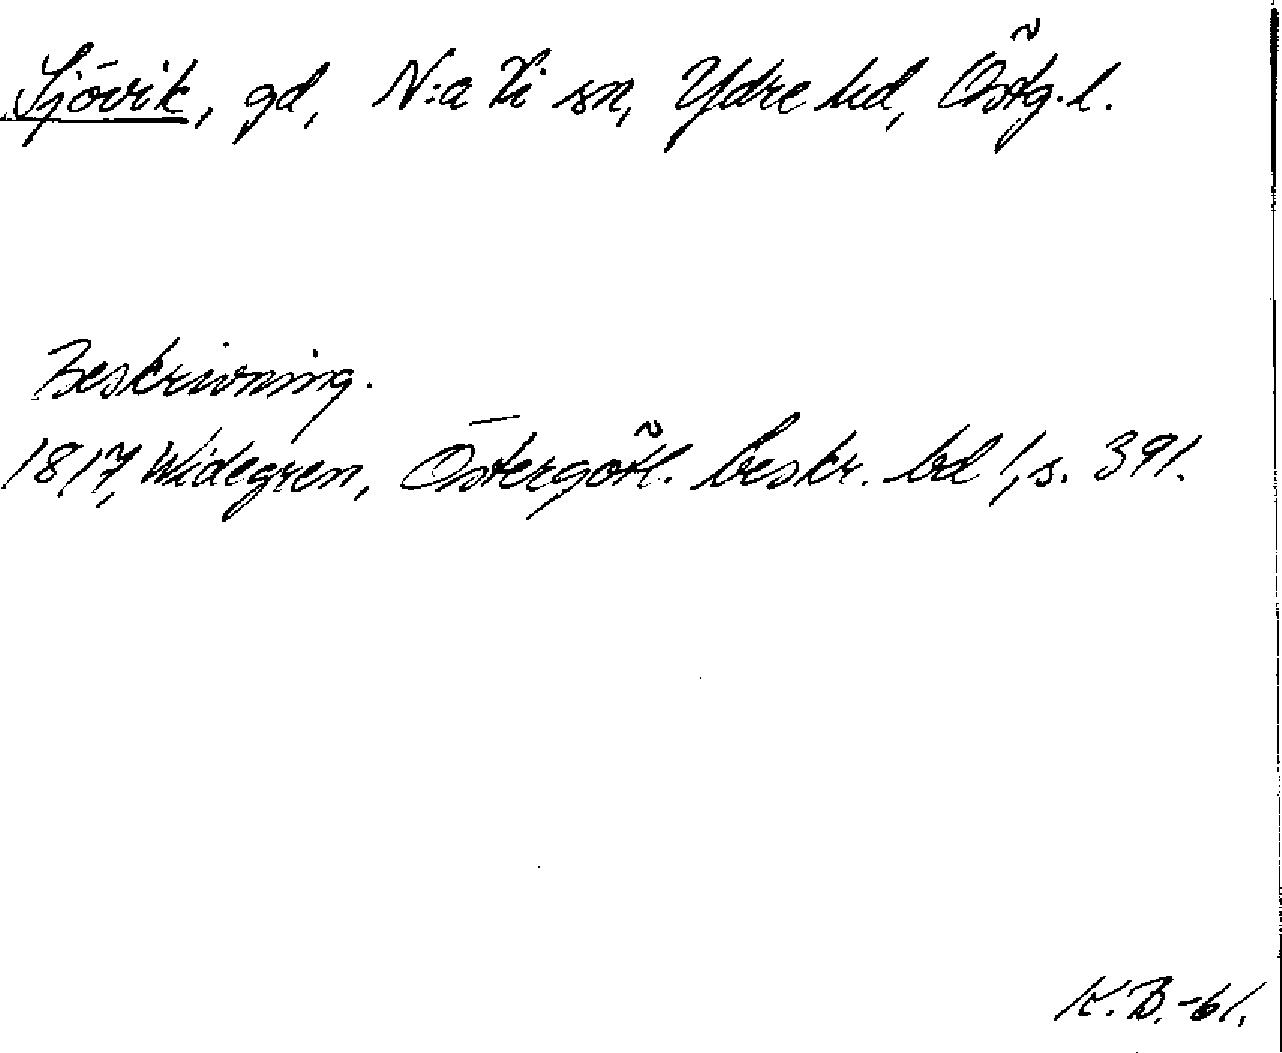 Sjövik, gd, N:a Vi sn, Ydre hd, Östg. l.
Beskrivning.
1817, Widegren, Östergötl. beskr. bd 1, s. 391.
K.B. -61.